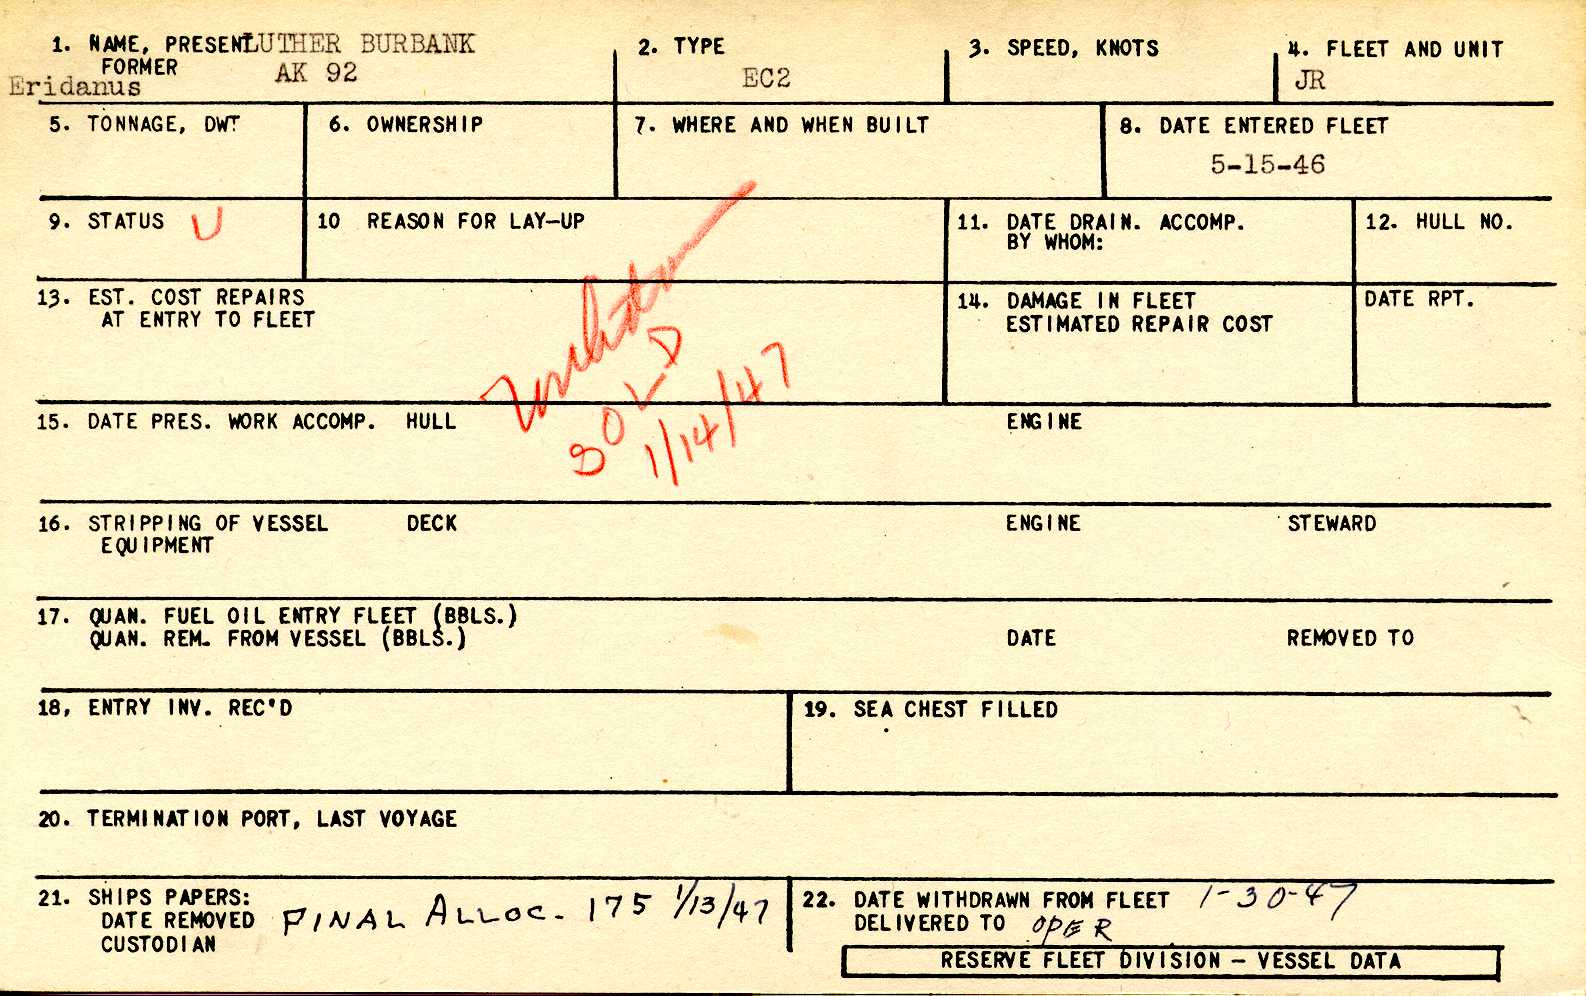 1. NAME, PRESENT LUTHER BURBANK
FORMER AK 92
Eridanus
2. TYPE
EC2
3. SPEED, KNOTS
4. FLEET AND UNIT
JR
5. TONNAGE, DWT
6. OWNERSHIP
7. WHERE AND WHEN BUILT
8. DATE ENTERED FLEET
5-15-46
9. STATUS U
10 REASON FOR LAY-UP
11. DATE DRAIN. ACCOMP.
BY WHOM:
12. HULL NO.
13. EST. COST REPAIRS
AT ENTRY TO FLEET
14. DAMAGE IN FLEET
ESTIMATED REPAIR COST
DATE RPT.
SOLD
1/14/47
15. DATE PRES. WORK ACCOMP. HULL ENGINE
16. STRIPPING OF VESSEL DECK ENGINE STEWARD
EQUIPMENT
17. QUAN. FUEL OIL ENTRY FLEET (BBLS.)
QUAN. REM. FROM VESSEL (BBLS.) DATE REMOVED TO
18, ENTRY INV. REC'D
19. SEA CHEST FILLED
20. TERMINATION PORT, LAST VOYAGE
21. SHIPS PAPERS:
DATE REMOVED FINAL ALLOC. 175 1/13/47
CUSTODIAN
22. DATE WITHDRAWN FROM FLEET 1-30-47
DELIVERED TO OPER
RESERVE FLEET DIVISION – VESSEL DATA